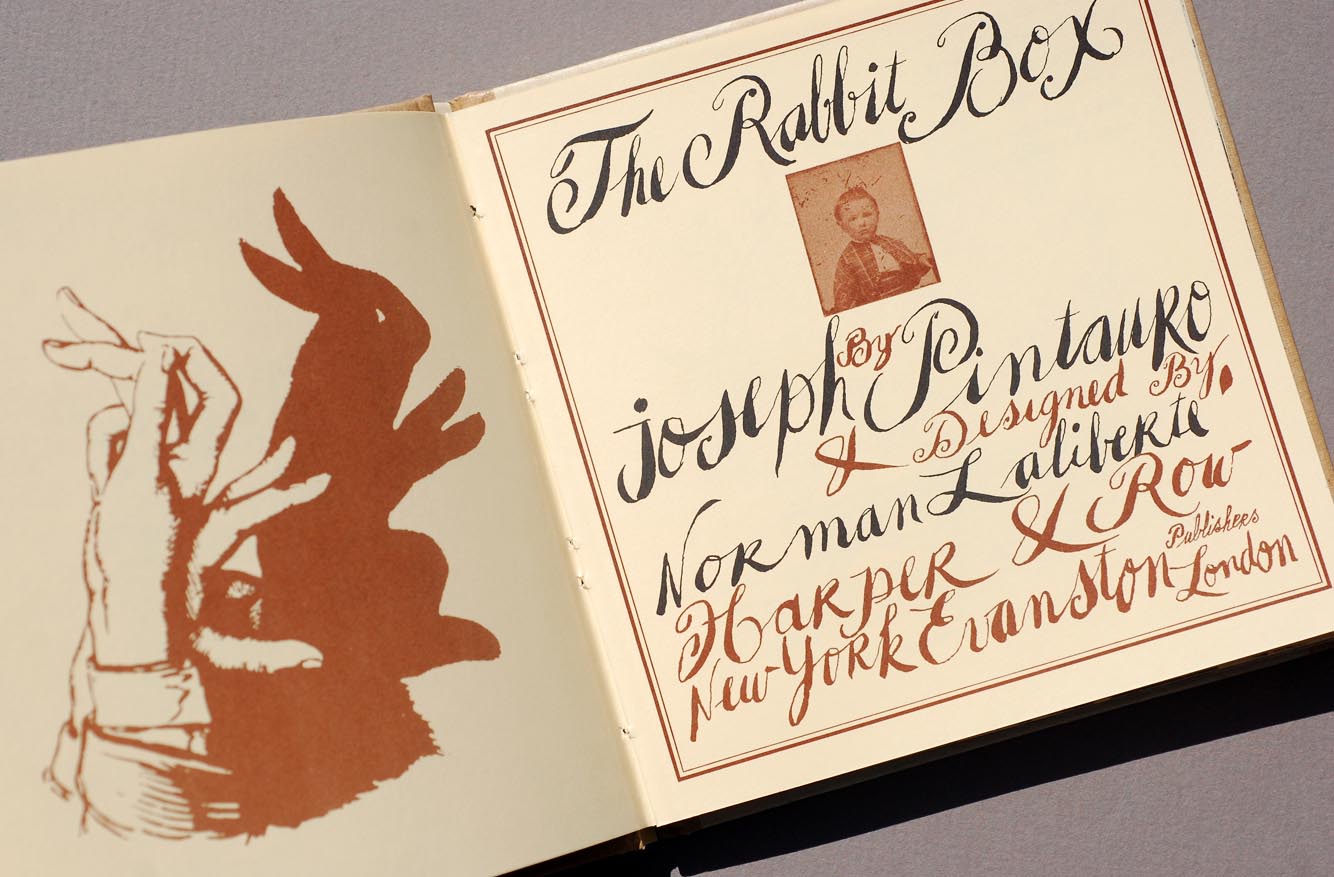 The Rabbit Box
By
joseph Pintauro
& Designed By,
Norman Laliberte
Harper & Row
Publishers
New York Evanston London